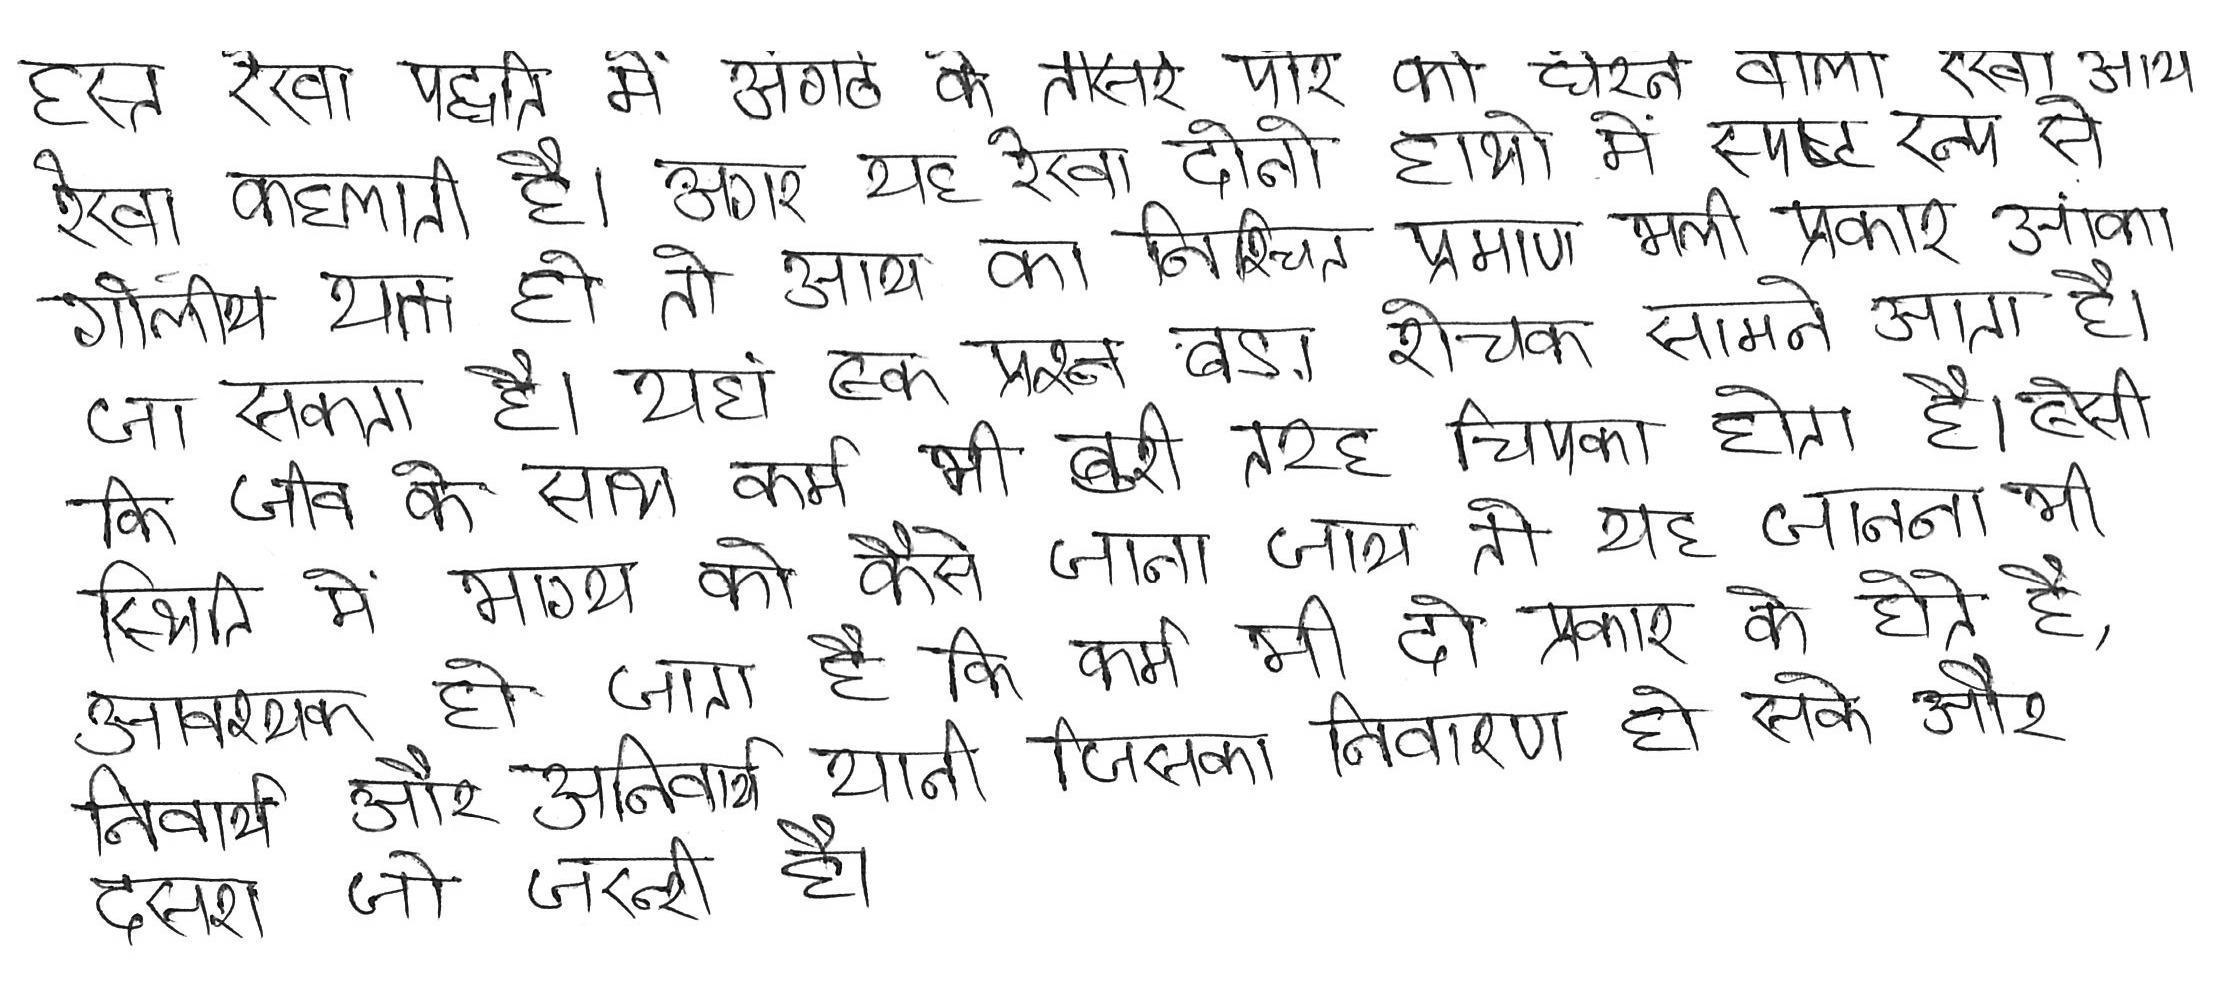 हस्त रेखा पद्धति में अंगठे के तीसरे पोर को घेरने वाली रेखा आय
रेखा कहलाती है। अगर यह रेखा दोनो हाथो में स्पष्ट रूप से
गोलीय यक्त हो तो आय का निश्चित प्रमाण भली प्रकार आंका
जा सकता है। यहां एक प्रश्न बड़ा रोचक सामने आता है।
कि जीव के साथ कर्म भी बुरी तरह चिपका होता है। ऐसी
स्थिति में भाग्य को कैसे जाना जाय तो यह जानना भी
आवश्यक हो जाता है कि कर्म भी दो प्रकार के होते है,
निवार्य और अनिवार्य यानी जिसका निवारण हो सके और
दसरा जो जरूरी है।